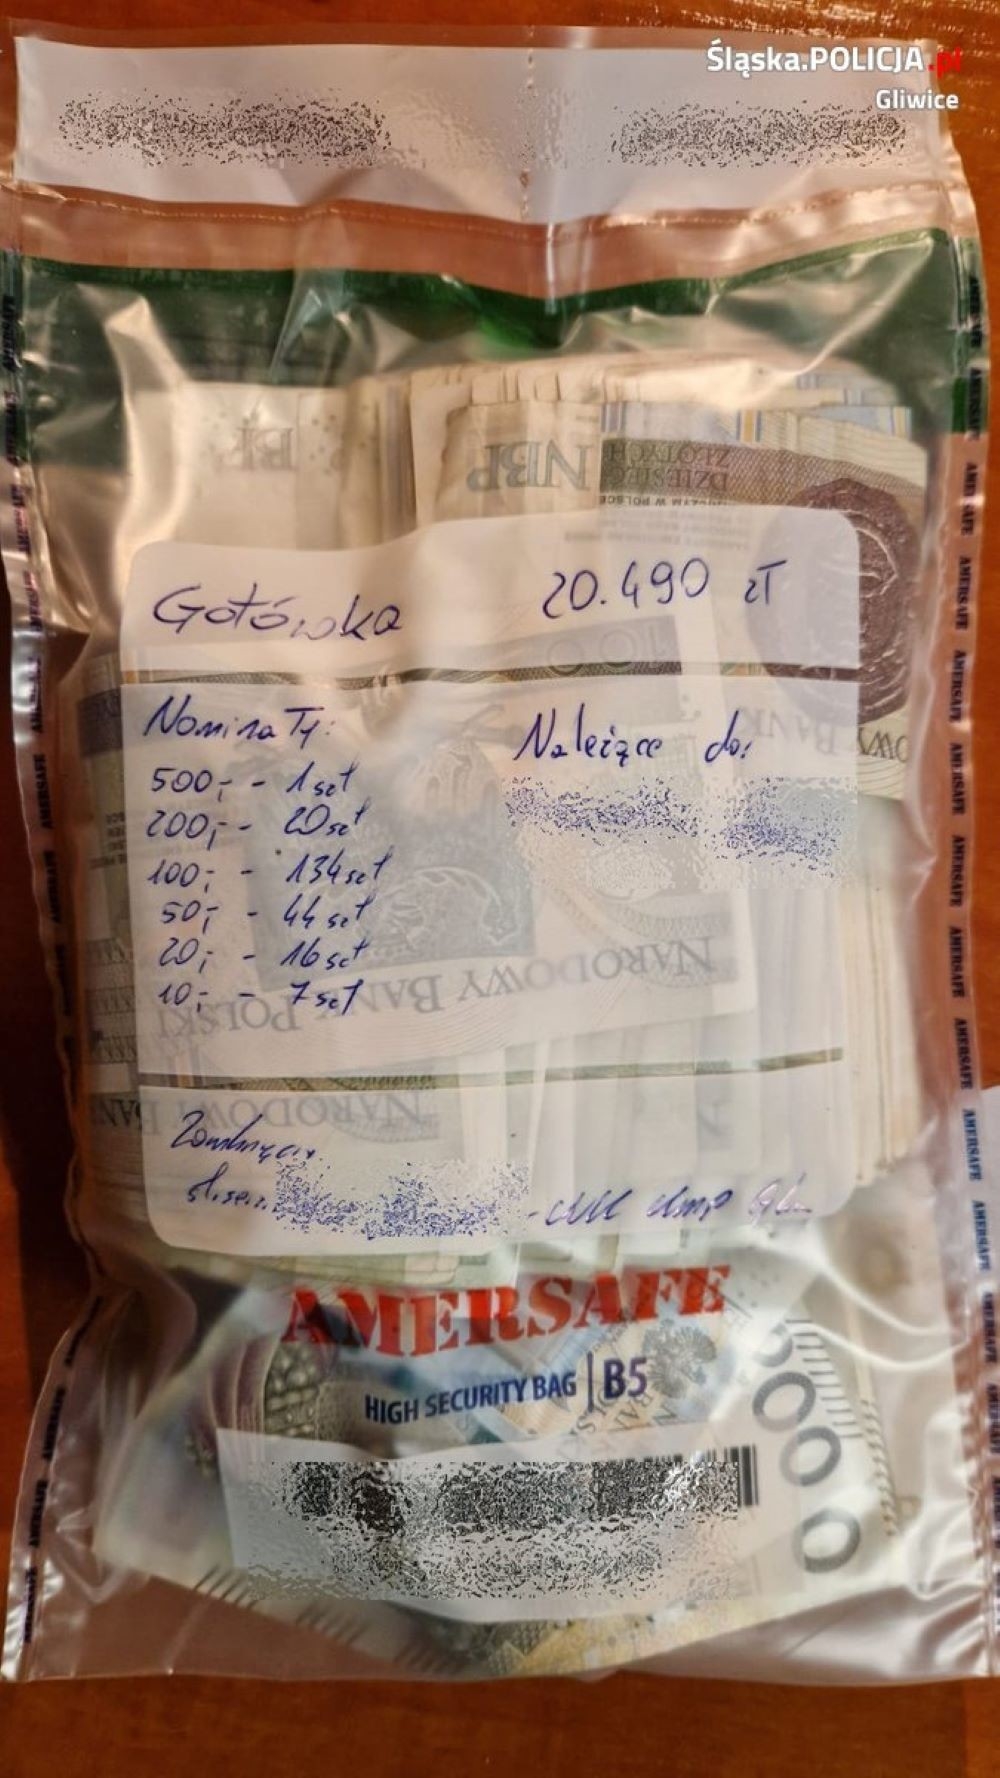 Śląska.POLICJA.pl
Gliwice
NBP
DZIESIĘĆ
ZŁOTYCH
Gotówka 20.490 zł
100
Nominały: Należące do:
500,- - 1 szt
200,- - 20 szt
100,- - 134 szt
50,- - 44 szt
20,- - 16 szt
10,- - 7 szt
NARODOWY BANK POLSKI
NARODOWY BAN
Zamknięcia
AMERSAFE
HIGH SECURITY BAG | B5
500
AMERSAFE